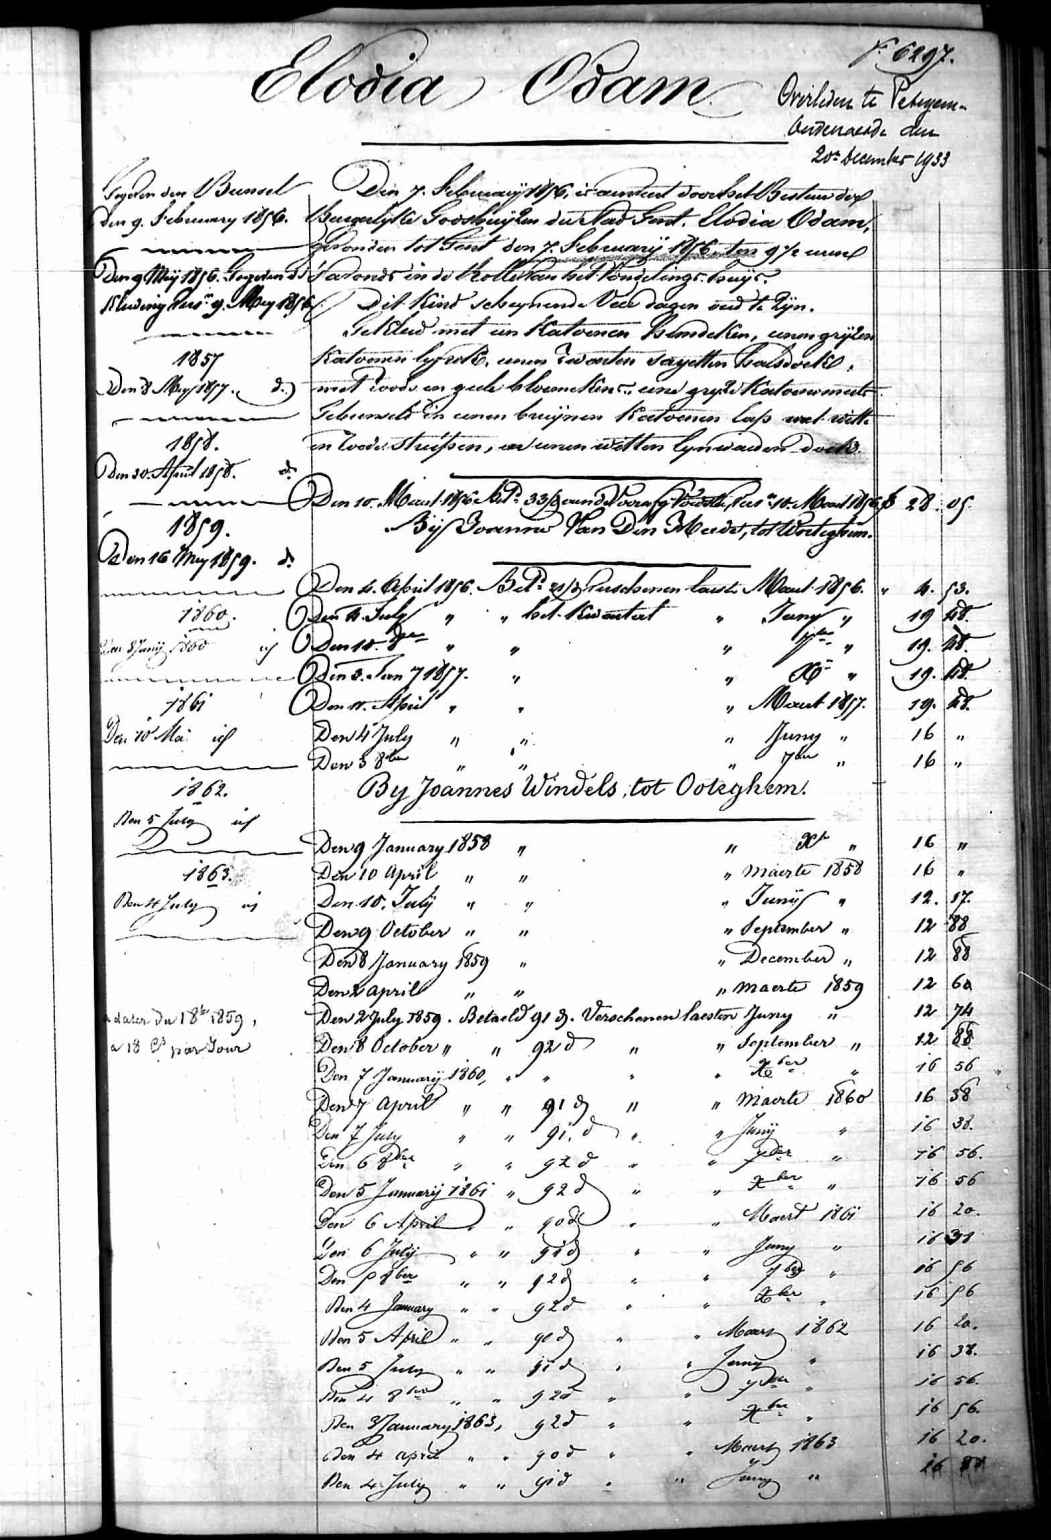 f° 6297.
Elodia Odam
Overleden te Petegem-
Audenaerde den
20n December 1933
Den 7. February 1856, is aenveerd door het Bestuer der
Burgerlyke Godshuyzen der stad Gent, Elodia Odam,
gevonden tot Gent den 7. February 1856, ten 9 1/2 uren
's avonds in de Rolle van het Vondelings-huys.
Dit Kind scheynende Veer dagen oud te zyn.
Gekleed met een Katoenen hemdeken, eenen gryzen
Katoenen lyfrok, eenen zwarten sayetten halsdoek,
met roode en geele bloemekens, eene gryze Katoene muts
in eenen bruynen Katoenen lap met witte
en roode struypen, en eenen witten lynwaeden doek.
Den 9. February 1856.
Den 9 Mey 1856.
Kleeding Vers. 9. Mey 1856
1857
Den 8 Mey 1857. d.
1858.
Den 30. April 1858. d.
1859.
Den 16 Mey 1859. d.
1860.
Den Juny 1860 id
1861
Den 10 Mai id
1862.
Den 5 July id
1863.
Den 4 July id
à dater du 1 8bre 1859,
a 18 Cs par Jour
Den 10. Maert 1856. 28. 05.
By Joanna Van Den Meede, tot Wortegem.
Den 4. April 1856. Bet. verschenen laest. Maert 1856. " 4. 53.
Den 4. July " " het Kwartaet " Juny " 19 48.
Den 10. 8bre " " " 7bre " 19. 48.
Den 3. Jan 1857. " " Xr " 19. 48.
Den 11. April " " " Maert 1857. 19. 48.
Den 4 July " " " Juny " 16 "
Den 3 8bre " " " 7bre " 16 "
By Joannes Windels, tot Ooteghem.
Den 9 January 1858 " " Xr " 16 "
Den 10 April " " " maerte 1858 16 "
Den 10. July " " " Juny " 12. 17.
Den 9 October " " " September " 12 88
Den 8 January 1859 " " December " 12 88
Den 2 april " " " maerte 1859 12 60
Den 2 July 1859. Betaeld 91 d. Verschenen laesten Juny " 12 74
Den 8 October " " 92 d " " September " 12 88.
Den 7 January 1860, " " " " Xber " 16 56
Den 7 April " " 91 d " " Maerte 1860 16 38
Den 7 July " " 91. d " " Juny " 16 38.
Den 6 8ber " " 92 d " " 7ber " 16 56.
Den 5 January 1861 " 92 d " " Xber " 16 56
Den 6 April " " 90 d " " Maert 1861 16 20.
Den 6 July " " 91 d " " Juny " 16 38
Den 5 8ber " " 92 d " " 7ber " 16 56
Den 4 January " " 92 d " " Xber " 16 56
Den 5 April " " 90 d " " Maert 1862 16 20.
Den 5 July " " 91 d " " Juny " 16 38.
Den 4 8ber " " 92 d " " 7ber " 16 56.
Den 3 January 1863, 92 d " " Xber " 16 56.
Den 4 april " " 90 d " " Maert 1863 16 20.
Den 4 July " " 91 d " " Juny " 16